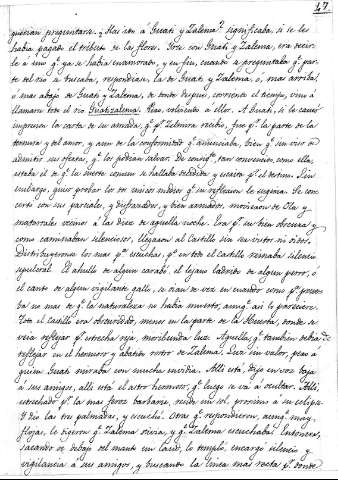 47
querian preguntarse. Haí acá á Guati y Zalema significaba, si se les
habia pagado el tributo de las flores. Irse con Guati y Zalema, era decir-
le á uno q.e ya se habia enamorado, y en fin, cuando á preguntaba q.e par-
te del rio se buscaba, respondiase, la de Guati y Zalema, ó, mas arriba,
ó mas abajo de Guati y Zalema, de donde despues, corriendo el tiempo, vino á
llamarse todo el rio Guatizalema. Pero, volviendo á ellos. A Guati, se le causó
impresion la carta de su amada, q.e p.r Zelmira recibió, fue p.r la parte de la
ternura y del amor, y aun de la conformidad q.e anunciaba, bien q.e sin
admitir sus ofertas, q.e los podian salvar. De consig.te, tan convencido, como ella
estaba el de q.e la suerte comun se hallaba decidida y escrita p.r el destino. Sin
embargo, quiso probar los dos unicos medios q.e su reflexion le sugeria. Se con-
certó con sus parciales, y disfrazados, y bien armados, marcharon de Ola y
matorrales vecinos á las diez de aquella noche. Era p.r su bien obscura y
como caminaban silenciosos, llegaron al Castillo sin ser vistos ni oidos.
Distribuyeronse los mas p.r escuchas, p.s en todo el Castillo reinaba silencio
sepulcral. El ahullo de algun carabo, el lejano ladrido de algun perro, ó
el canto de algun vigilante gallo, se oían de vez en cuando como p.a prueba
de q.e la naturaleza no habia muerto, aunq.e asi lo pareciere.
Todo el Castillo era obscuridad, menos en la parte de la Huerta, donde se
veia reflejar p.r estrecha reja, moribunda luz. Aquella q.e tambien debia de
reflejar en el hermoso y abatido rostro de Zalema. Luz sin valor, pero á
quien Guati miraba con mucha envidia. Allí está, dijo en voz baja
á sus amigos, allí está el astro hermoso, q.e luego se vá á ocultar. Allí,
estrechado p.r la mas feroz barbarie, rinde mi sol, proximo á su eclipse.
Y dió las tres palmadas, y escuchó. Otras q.e respondieron, aunq.e muy
flojas, le dijeron q.e Zalema oiria, y q.e Zalema escuchaba. Entonces,
sacando de debajo del manto un laud, lo templó, encargó silencio y
vigilancia á sus amigos, y buscando la linea mas recta p.r donde